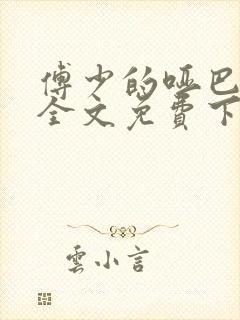 傅少的哑巴
全文免費下
雲小言